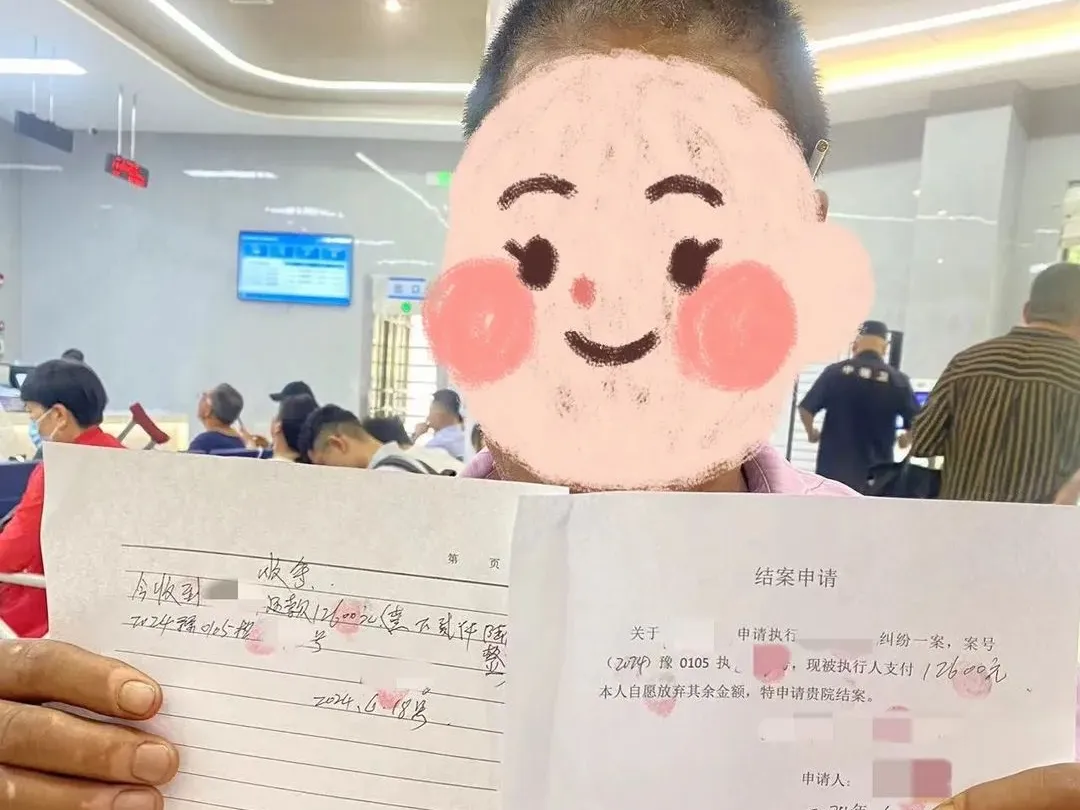 第 页
收条
今收到
还款12600元(壹万贰仟陆
整
2024豫0105执 号
2024.6.18号
结案申请
关于 申请执行 纠纷一案，案号
(2024) 豫 0105 执 ，现被执行人支付 12600元
本人自愿放弃其余金额，特申请贵院结案。
申请人：
出口